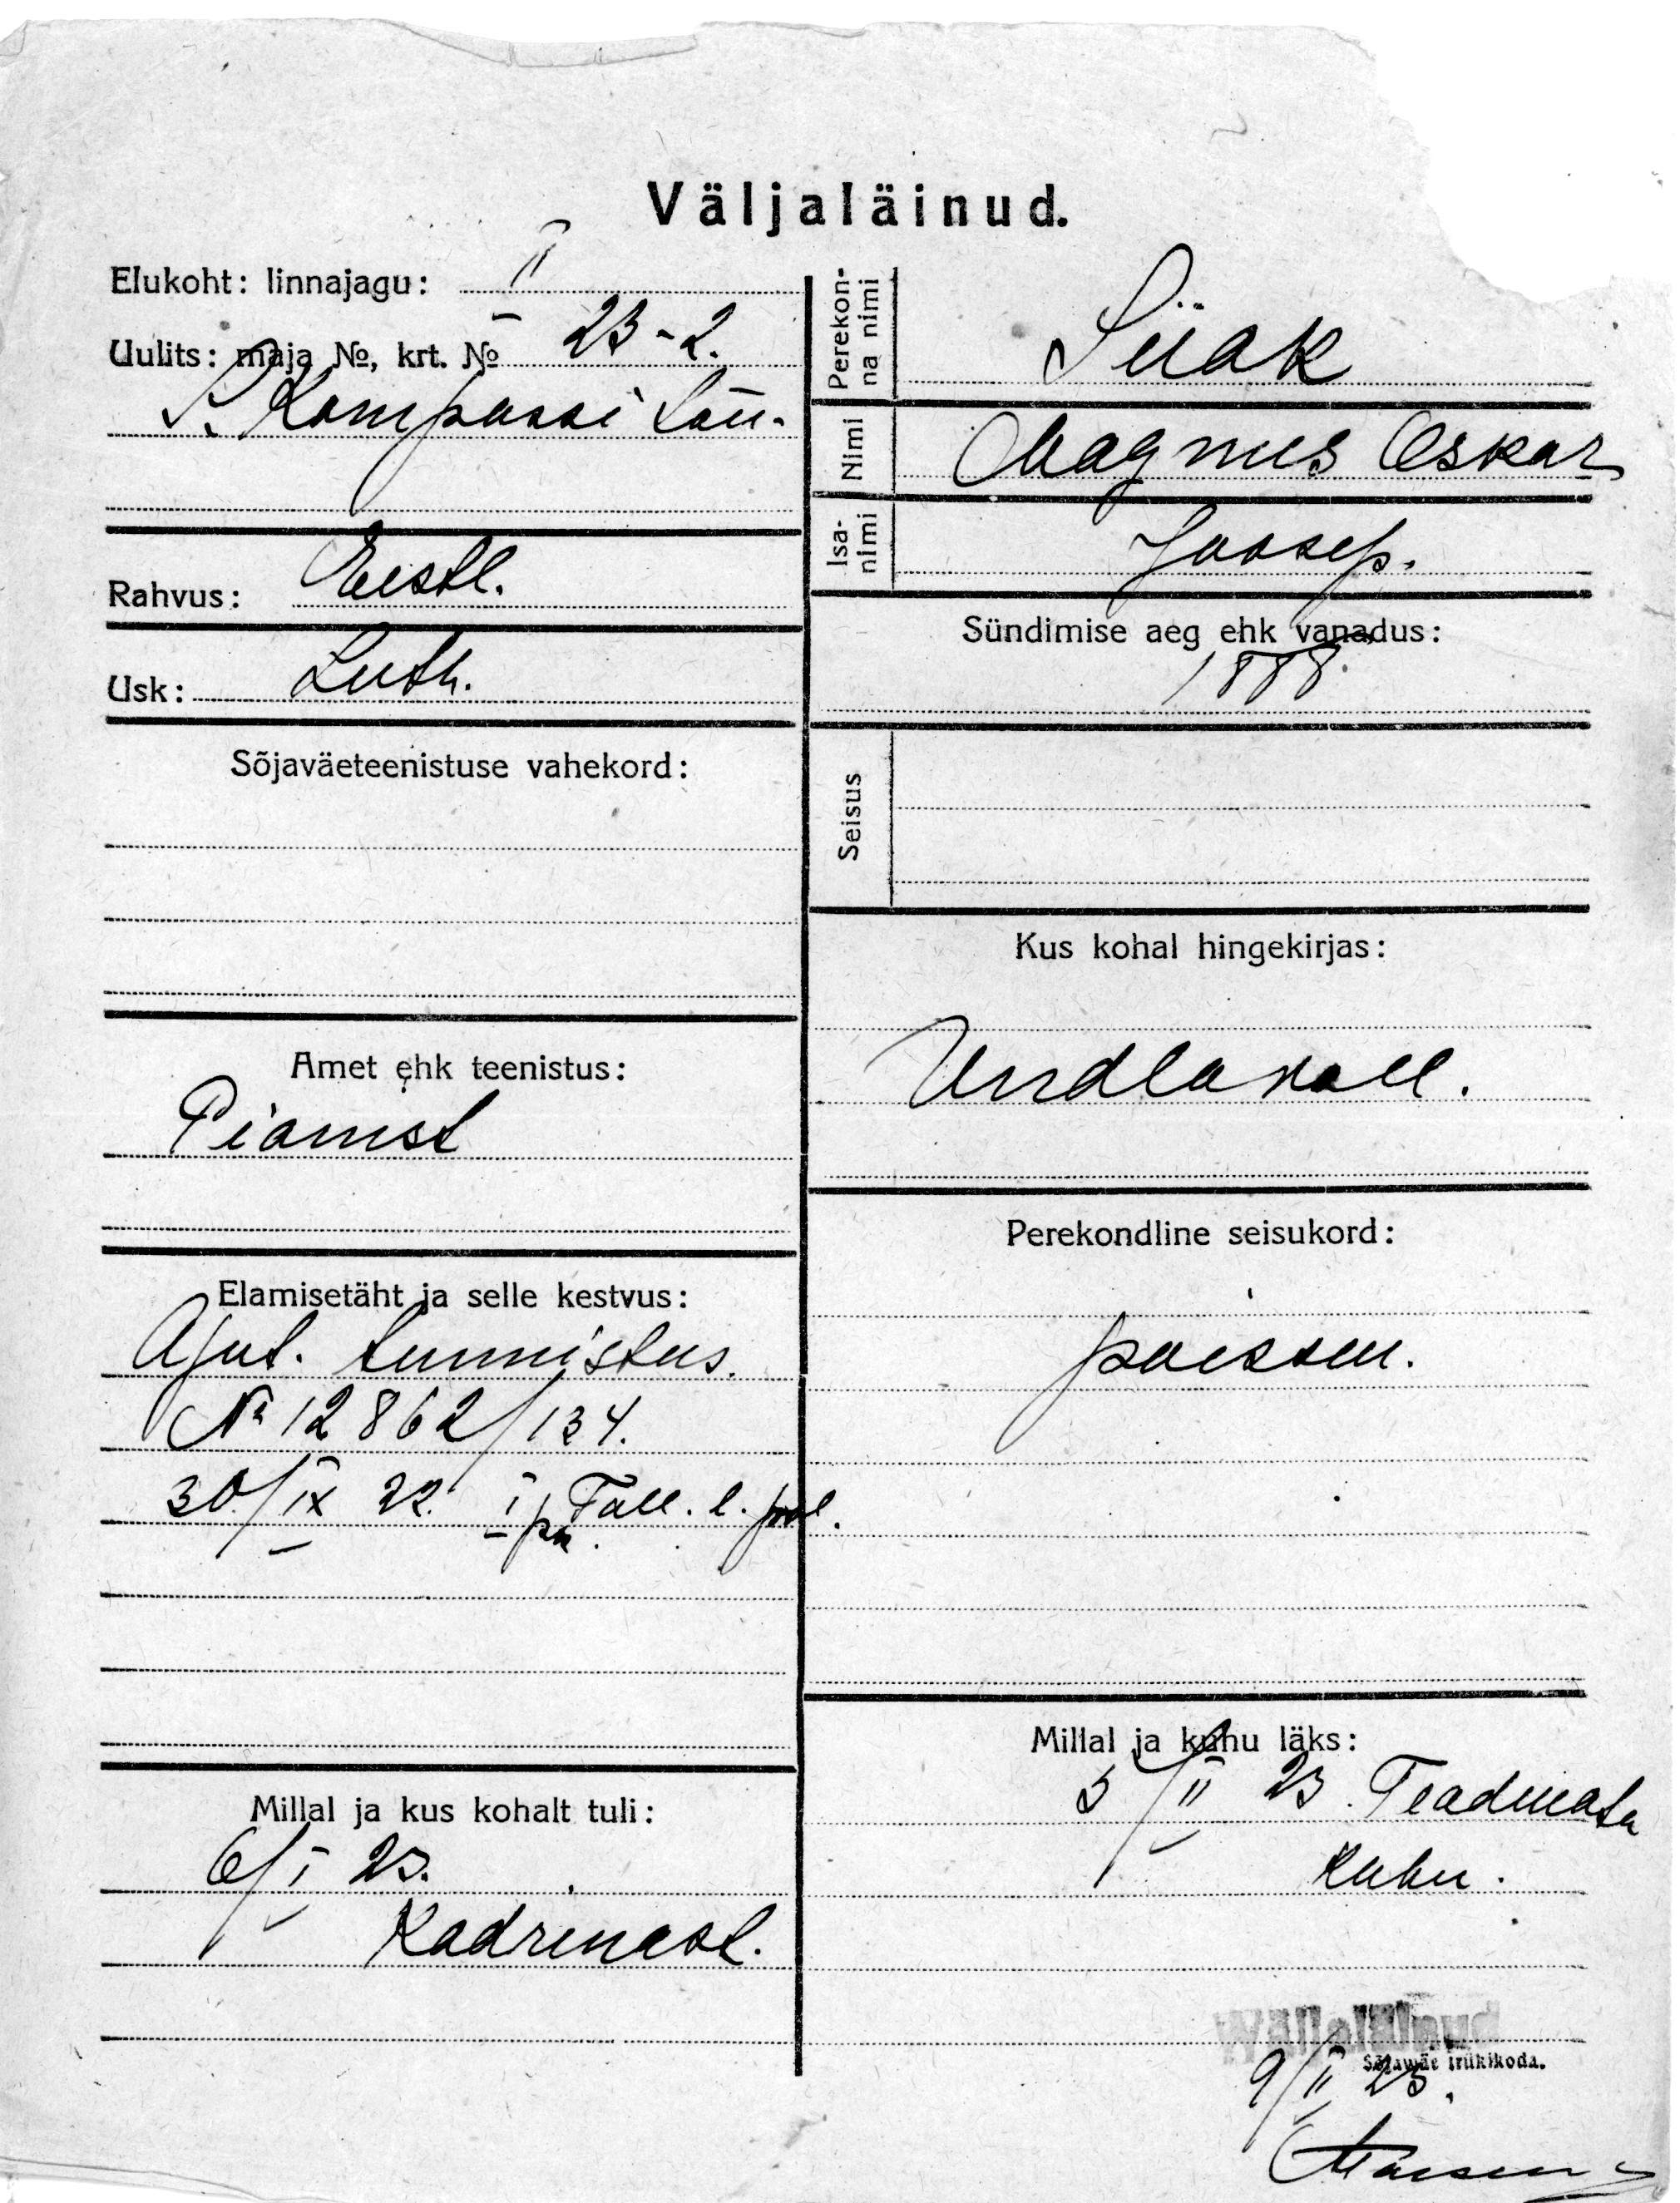 Väljaläinud.
Elukoht: linnajagu: II
Uulits: maja №, krt. № 23-2.
S. Kompassi tän.
Rahvus: Eestl.
Usk: Luth.
Sõjaväeteenistuse vahekord:
Amet ehk teenistus:
Pianist
Elamisetäht ja selle kestvus:
Ajut. tunnistus.
№ 12862/134.
30/IX 22. I Tall. l. pol.
Millal ja kus kohalt tuli:
6/I 23.
Kadrinast.
Perekon-
na nimi
Siiak
Nimi
Magnus Oskar
Isa-
nimi
Joosep.
Sündimise aeg ehk vanadus:
1888.
Seisus
Kus kohal hingekirjas:
Undla vall.
Perekondline seisukord:
poissm.
Millal ja kuhu läks:
5/II 23. Teadmata
kuhu.
Wäljaläinud
Sõjawäe trükikoda.
9/II 23.